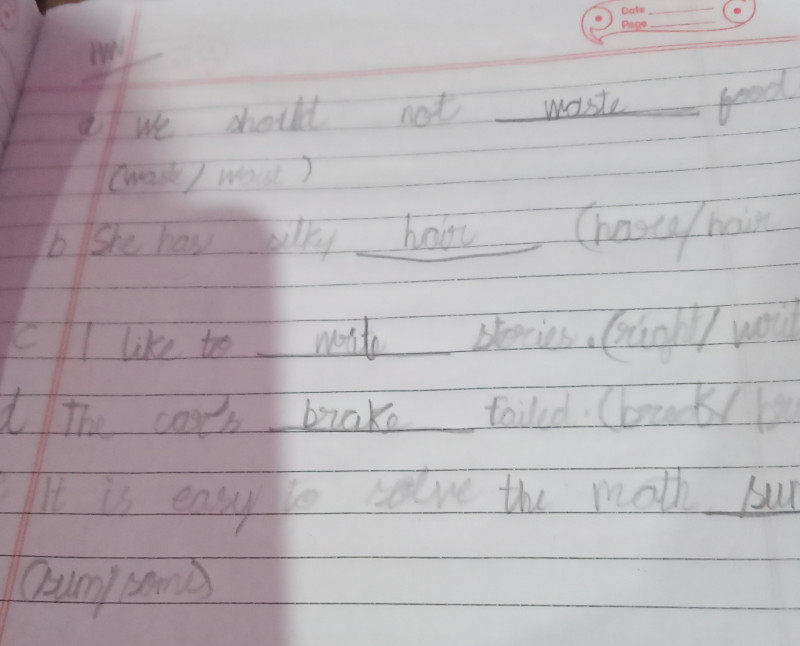 Date
Page
HW
a we should not waste food
(waste/ )
b She has silky hair (hare/hair
c I like to write stories. (right/
d The car's brake failed. (break/
It is easy to solve the math sum
(sum/some)